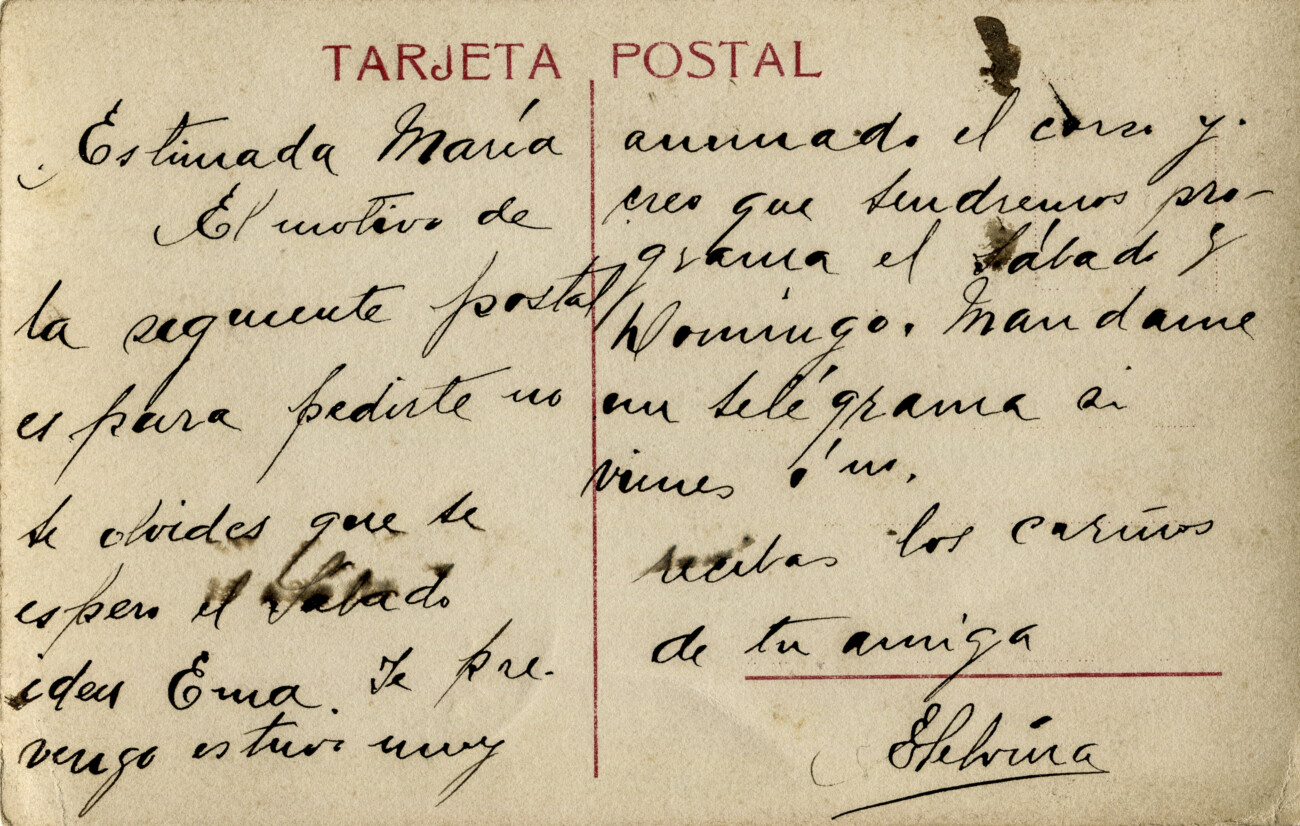 TARJETA POSTAL
Estimada María
El motivo de
la seguiente postal
es para pedirte no
te olvides que te
espero el Sábado
iden Ema. Te pre-
vengo estuvo muy
animado el corso y
creo que tendremos pro-
grama el Sábado y
Domingo. Mandame
un telégrama si
vienes ó no.
recibas los cariños
de tu amiga
Etelvina